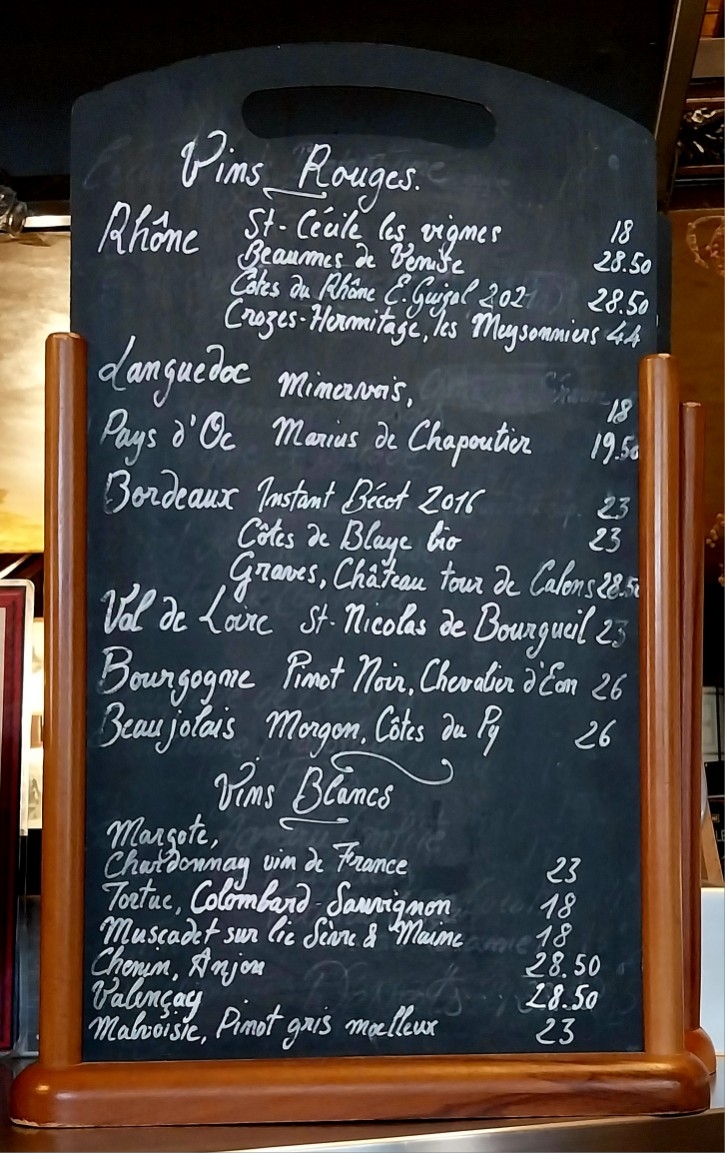 Vins Rouges.
Rhône St-Cécile les vignes 18
Beaumes de Venise 28.50
Côtes du Rhône E. Guigal 202 28.50
Crozes-Hermitage, les Meysonniers 44
Languedoc Minervois, 18
Pays d'Oc Marius de Chapoutier 19.50
Bordeaux Instant Bécot 2016 23
Côtes de Blaye bio 23
Graves, Château tour de Calens 28.50
Val de Loire St-Nicolas de Bourgueil 23
Bourgogne Pinot Noir, Chevalier d'Eon 26
Beaujolais Morgon, Côtes du Py 26
Vins Blancs
Margote,
Chardonnay vin de France 23
Tortue, Colombard-Sauvignon 18
Muscadet sur lie Sèvre & Maine 18
Chenin, Anjou 28.50
Valençay 28.50
Malvoisie, Pinot gris moelleux 23